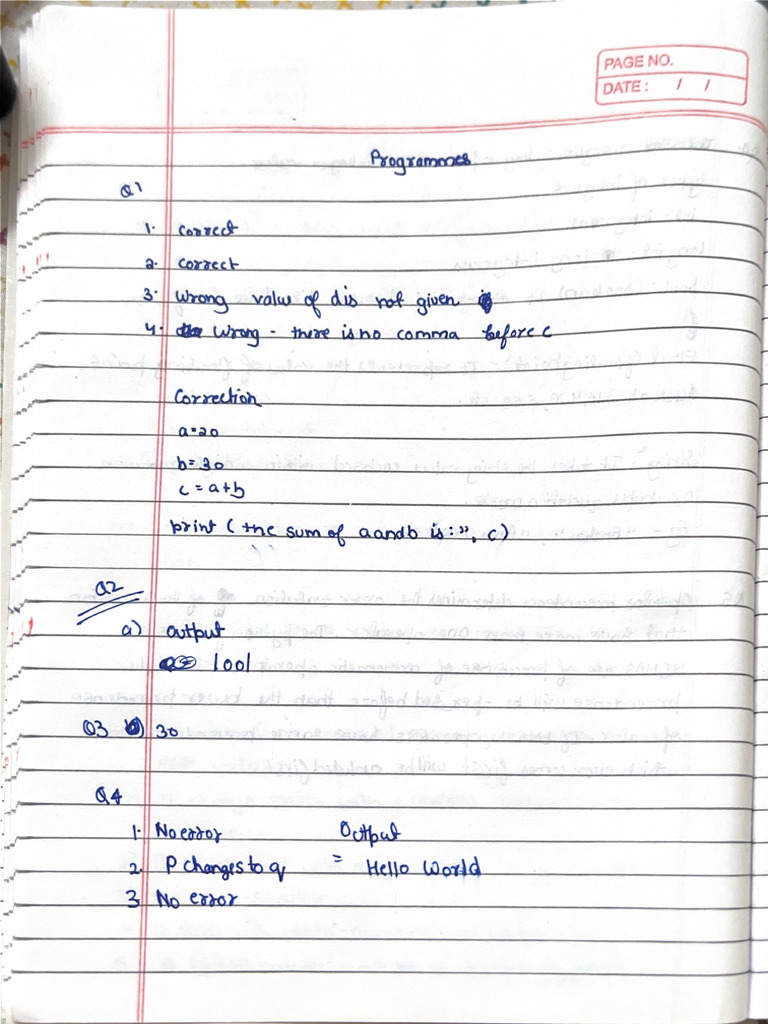 PAGE NO.
DATE: / /
Programmes
Q1
1. Correct
2. Correct
3. Wrong value of d is not given
4. Wrong - there is no comma before c
Correction
a=20
b=30
c=a+b
print ( the sum of a and b is:", c)
Q2
a) output
1001
Q3 30
Q4
1. No error Output
2. P changes to q = Hello World
3 No error